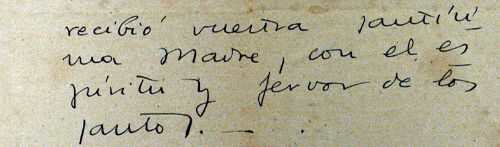 recibió vuestra santísi
ma Madre, con el es
píritu y fervor de los
santos. — .